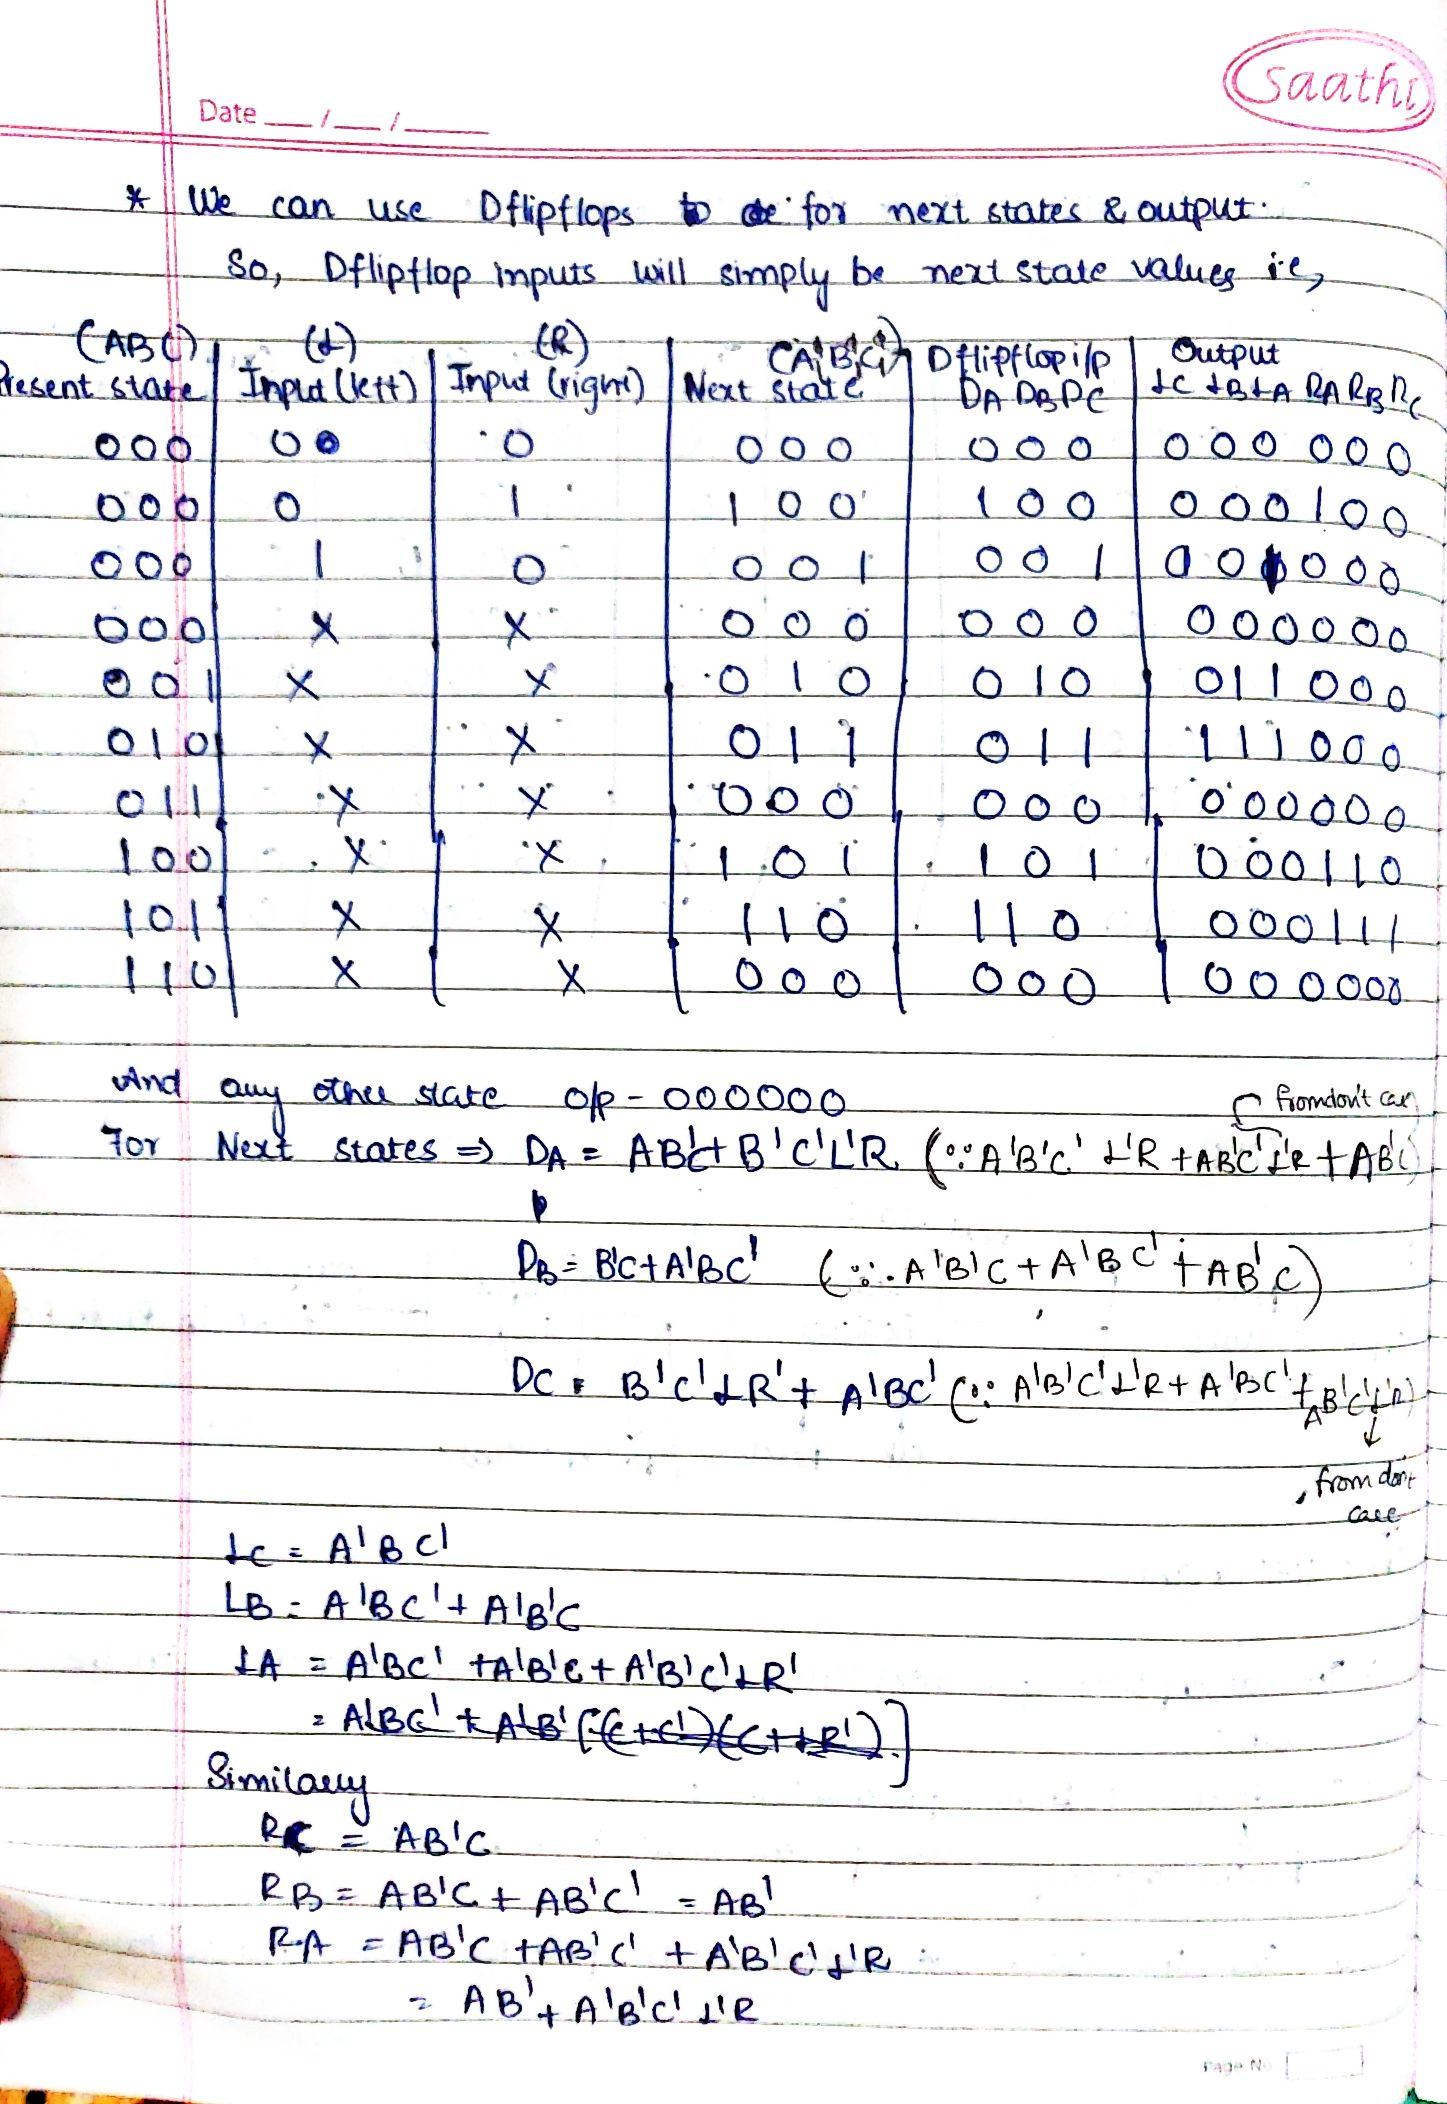 saathi
Date __/__/__
* We can use Dflipflops to for next states & output.
So, Dflipflop inputs will simply be next state values i.e,
(ABC) (L) (R) (A'B'C') Dflipflop i/p Output
Present state Input (left) Input (right) Next state DA DB DC LC LB LA RA RB RC
000 0 0 000 000 000000
000 0 1 100 100 000100
000 1 0 001 001 001000
000 X X 000 000 000000
001 X X 010 010 011000
010 X X 011 011 111000
011 X X 000 000 000000
100 X X 101 101 000110
101 X X 110 110 000111
110 X X 000 000 000000
And any other state o/p - 000000
from don't car
For Next states => DA = AB'C'+ B'C'L'R (∵ A'B'C' L'R + AB'C'L'R + AB'C
DB = B'C + A'BC' (∵ A'B'C + A'BC' + AB'C)
DC = B'C'LR' + A'BC' (∵ A'B'C'L'R + A'BC' + AB'C'L'R)
from don't
care
LC = A'BC'
LB = A'BC' + A'B'C
LA = A'BC' + A'B'C + A'B'C'LR'
= A'BC' + A'B' [(C+C')(C+LR')]
Similarly
RC = AB'C
RB = AB'C + AB'C' = AB'
RA = AB'C + AB'C' + A'B'C'L'R
= AB' + A'B'C'L'R
Page No